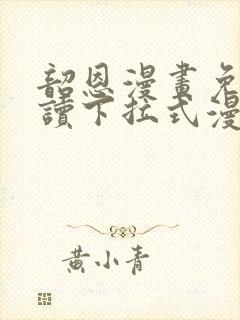 韶恩漫畫免
讀下拉式漫
黃小青